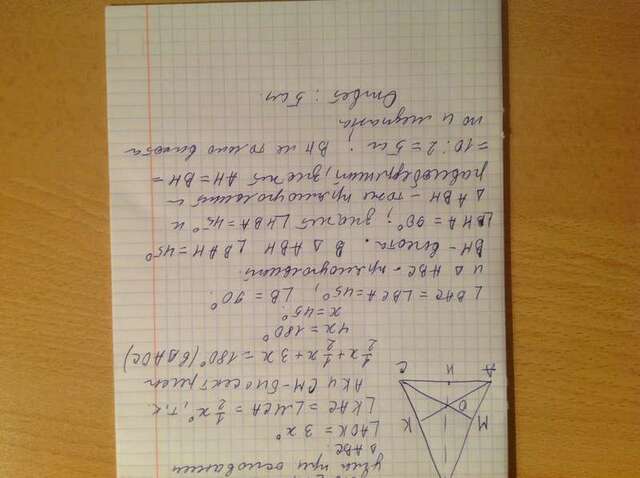 углы при основании
△ABC.
∠AOK = 3x°
∠KAC = ∠MCA = 1/2 x°, т.к.
AK и CM – биссектрисы
1/2 x + 1/2 x + 3x = 180° (в △AOC)
4x = 180°
x = 45°
M
K
O
A
H
C
∠BAC = ∠BCA = 45°, ∠B = 90°.
и △ ABC – прямоугольный.
BH – высота. В △ ABH ∠BAH = 45°
∠BHA = 90°; значит ∠HBA = 45° и
△ ABH – тоже прямоугольный и
равнобедренный, значит AH = BH =
= 10 : 2 = 5 см ; BH не только высота
но и медиана
Ответ : 5 см.